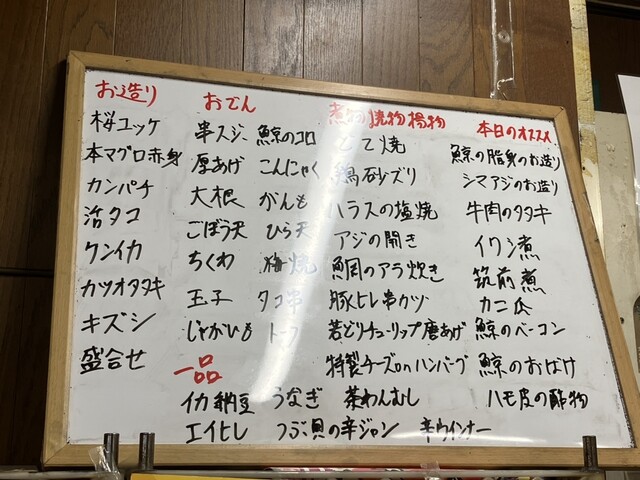 お造り
桜ユッケ
本マグロ赤身
カンパチ
活タコ
ケンイカ
カツオタタキ
キズシ
盛合せ
おでん
串スジ、鯨のコロ
厚あげ こんにゃく
大根 がんも
ごぼう天 ひら天
ちくわ 梅焼
玉子 タコ串
じゃがいも トーフ
煮物 焼物 揚物
とて焼
鶏砂ズリ
ハラスの塩焼
アジの開き
鯛のアラ炊き
豚ヒレ串カツ
若どりチューリップ唐あげ
特製チーズonハンバーグ
本日のオススメ
鯨の脂身のお造り
シマアジのお造り
牛肉のタタキ
イワシ煮
筑前煮
カニ爪
鯨のベーコン
鯨のおばけ
ハモ皮の酢物
一品
イカ納豆 うなぎ 茶わんむし
エイヒレ つぶ貝の辛ジャン 辛ウインナー